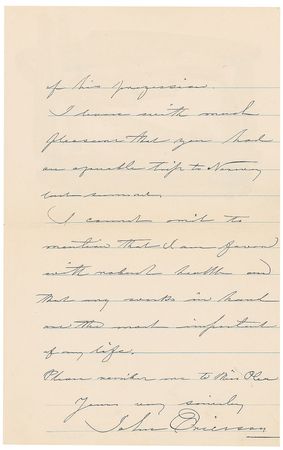 of his profession.
I learn with much
pleasure that you had
an agreeable trip to Norway
last summer.
I cannot omit to
mention that I am favored
with robust health and
that my works in hand
are the most important
of my life.
Please remember me to Miss
Yours very sincerely
John Ericsson